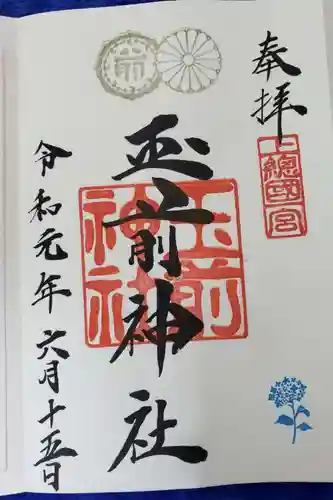 奉拝
上總國一宮
玉前神社
玉前神社
令和元年六月十五日